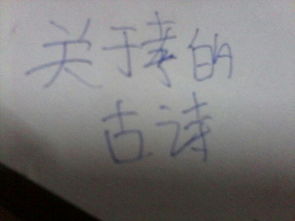 关于孝的
古诗